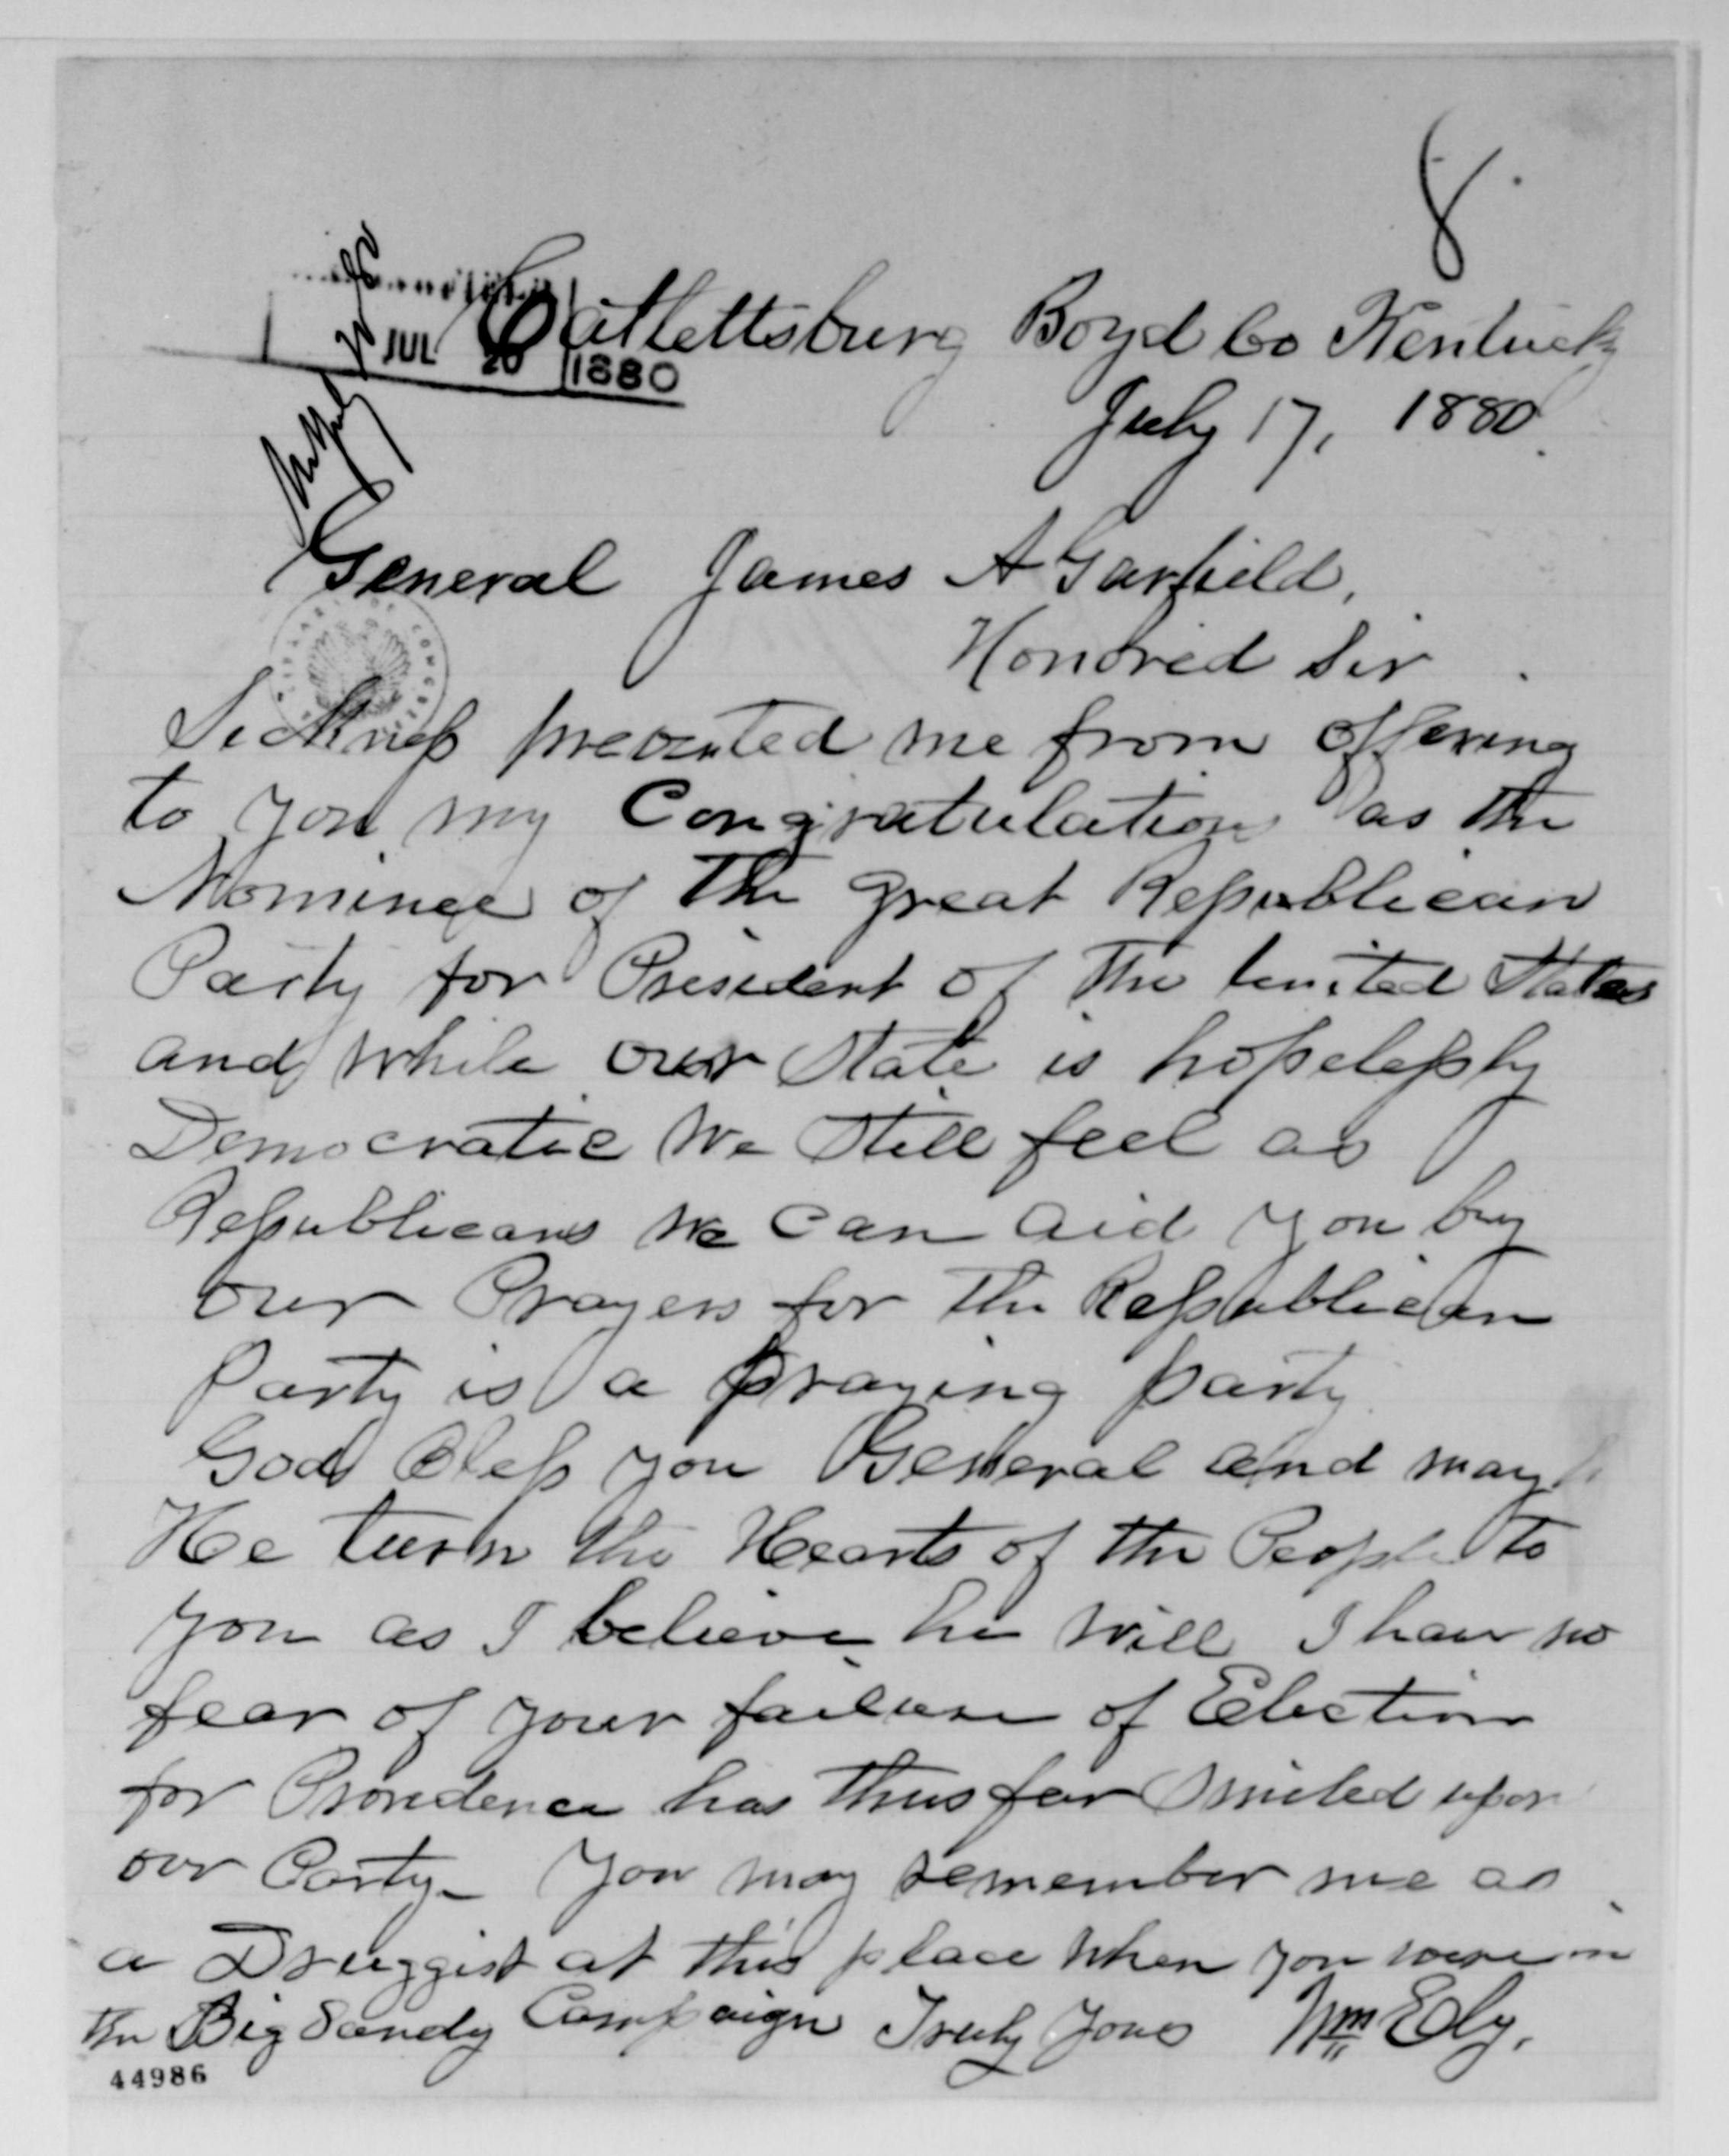 8.
JUL 20 1880
Catlettsburg Boyd Co Kentucky
July 17, 1880.
General James A Garfield,
Honored Sir
LIBRARY OF CONGRESS
Sickness prevented me from offering
to you my Congratulations as the
Nominee of the great Republican
Party for President of the United States
and while our State is hopelessly
Democratic We Still feel as
Republicans we can aid you by
our Prayers for the Republican
Party is a praying party
God Bless you General and may
He turn the Hearts of the People to
you as I believe he will I have no
fear of your failure of Election
for Providence has thus far Smiled upon
our Party- You may remember me as
a Druggist at this place when you were in
the Big Sandy Campaign Truly Yours Wm Ely.
44986